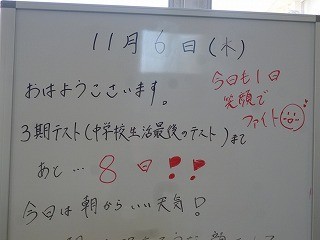 11月6日(木)
おはようございます。
今日も1日
笑顔で
ファイト
3期テスト(中学校生活最後のテスト)まで
あと… 8日!!
今日は朝からいい天気!